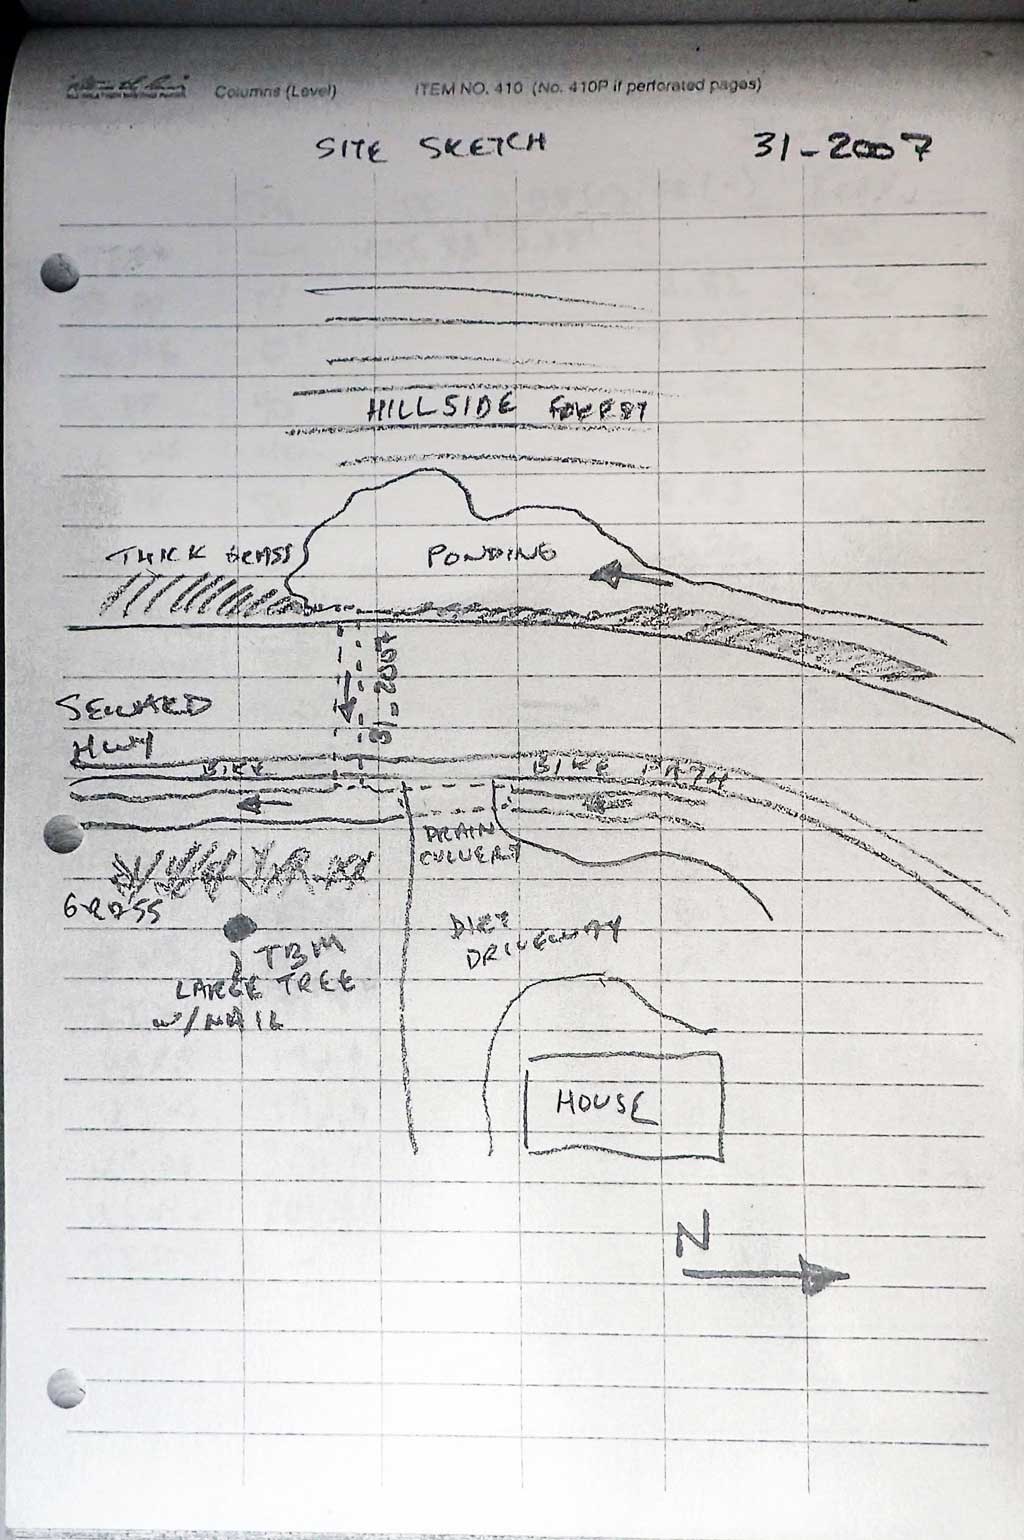 Columns (Level) ITEM NO. 410 (No. 410P if perforated pages)
SITE SKETCH 31-2007
HILLSIDE FOREST
THICK GRASS
PONDING
31-2007
SEWARD
HWY
BIKE
BIKE PATH
DRAIN
CULVERT
GRASS
DIRT
DRIVEWAY
TBM
LARGE TREE
W/NAIL
HOUSE
N